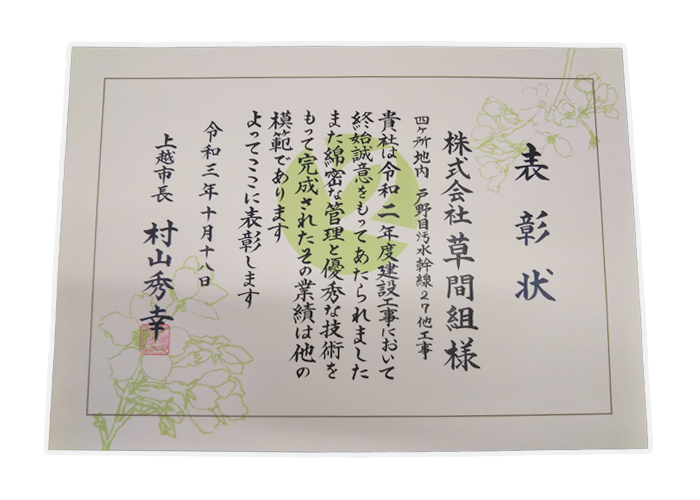 表彰状
株式会社 草間組 様
四ヶ所地内 戸野目汚水幹線27他工事
貴社は令和二年度建設工事において
終始誠意をもってあたられました
また綿密な管理と優秀な技術を
もって完成されたその業績は他の
模範であります
よってここに表彰します
令和三年十月十八日
上越市長 村山秀幸